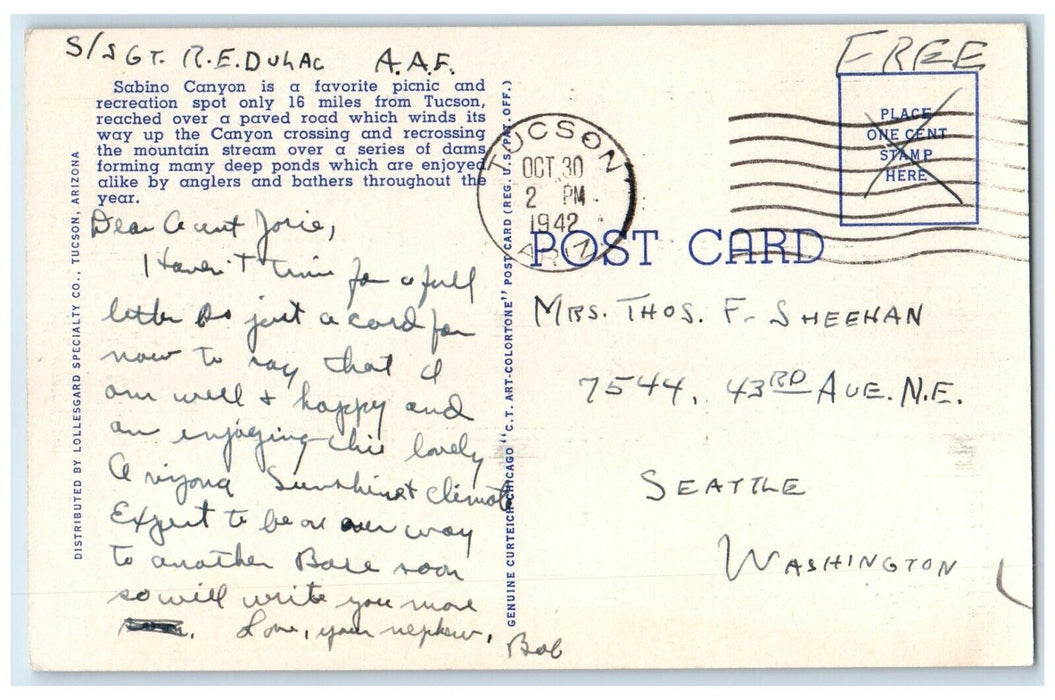 S/SGT. R.E. DULAC A.A.F.
FREE
Sabino Canyon is a favorite picnic and
recreation spot only 16 miles from Tucson,
reached over a paved road which winds its
way up the Canyon crossing and recrossing
the mountain stream over a series of dams
forming many deep ponds which are enjoyed
alike by anglers and bathers throughout the
year.
DISTRIBUTED BY LOLLESGARD SPECIALTY CO., TUCSON, ARIZONA
Dear Aunt Josie,
Haven't time for a full
letter so just a card for
now to say that I
am well & happy and
am enjoying this lovely
Arizona Sunshine & climate
Expect to be on our way
to another Base soon
so will write you more
Love, your nephew,
Bob
GENUINE CURTEICH-CHICAGO "C.T. ART-COLORTONE" POST CARD (REG. U.S. PAT. OFF.)
TUCSON
OCT 30
2 PM
1942
ARIZ
PLACE
ONE CENT
STAMP
HERE
POST CARD
MRS. THOS. F. SHEEHAN
7544, 43RD AVE. N.E.
SEATTLE
WASHINGTON